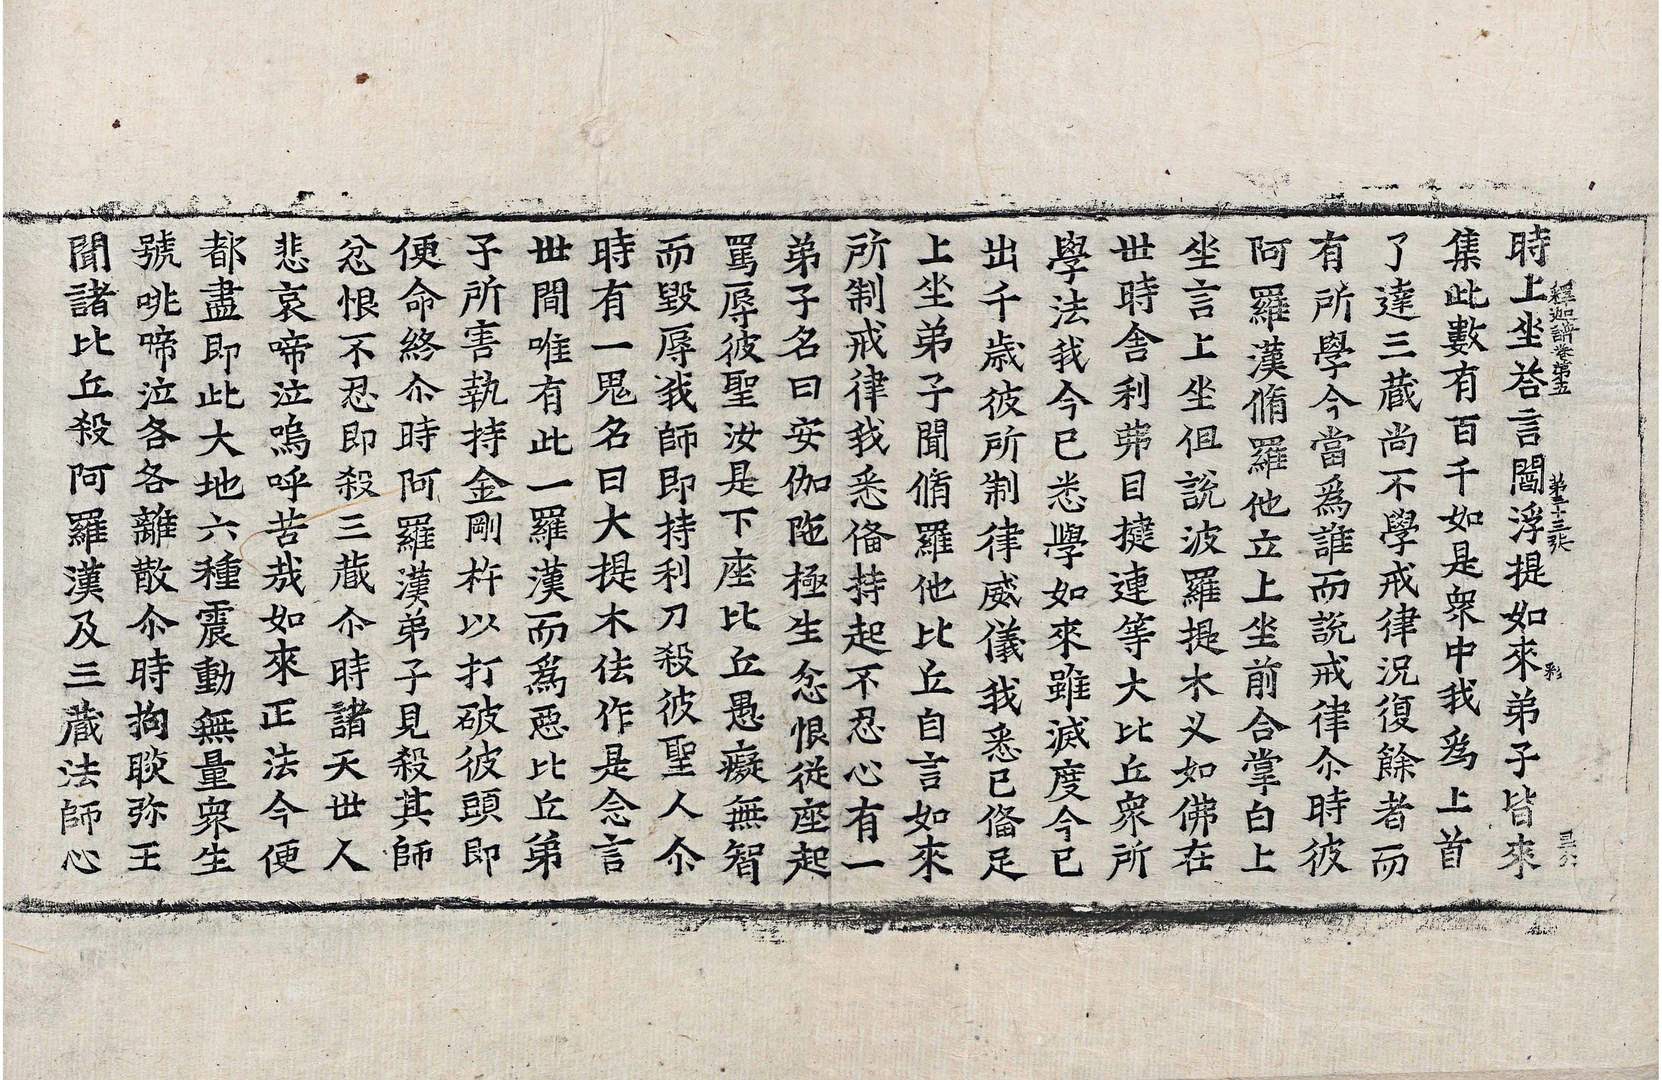 釋迦譜卷第五 第五十三張 彩
時上坐荅言閻浮提如來弟子皆來
集此數有百千如是衆中我爲上首
了達三藏尚不學戒律況復餘者而
有所學今當爲誰而說戒律尒時彼
阿羅漢脩羅他立上坐前合掌白上
坐言上坐但說波羅提木义如佛在
世時舍利弗目揵連等大比丘衆所
學法我今已悉學如來雖滅度今已
出千歲彼所制律威儀我悉已俻足
上坐弟子聞脩羅他比丘自言如來
所制戒律我悉俻持起不忍心有一
弟子名曰安伽陁極生忿恨從座起
罵辱彼聖汝是下座比丘愚癡無智
而毀辱我師即持利刀殺彼聖人尒
時有一鬼名曰大提木佉作是念言
世間唯有此一羅漢而爲惡比丘弟
子所害執持金剛杵以打破彼頭即
便命終尒時阿羅漢弟子見殺其師
忿恨不忍即殺三藏尒時諸天世人
悲哀啼泣嗚呼苦哉如來正法今便
都盡即此大地六種震動無量衆生
號咷啼泣各各離散尒時拘睒弥王
聞諸比丘殺阿羅漢及三藏法師心